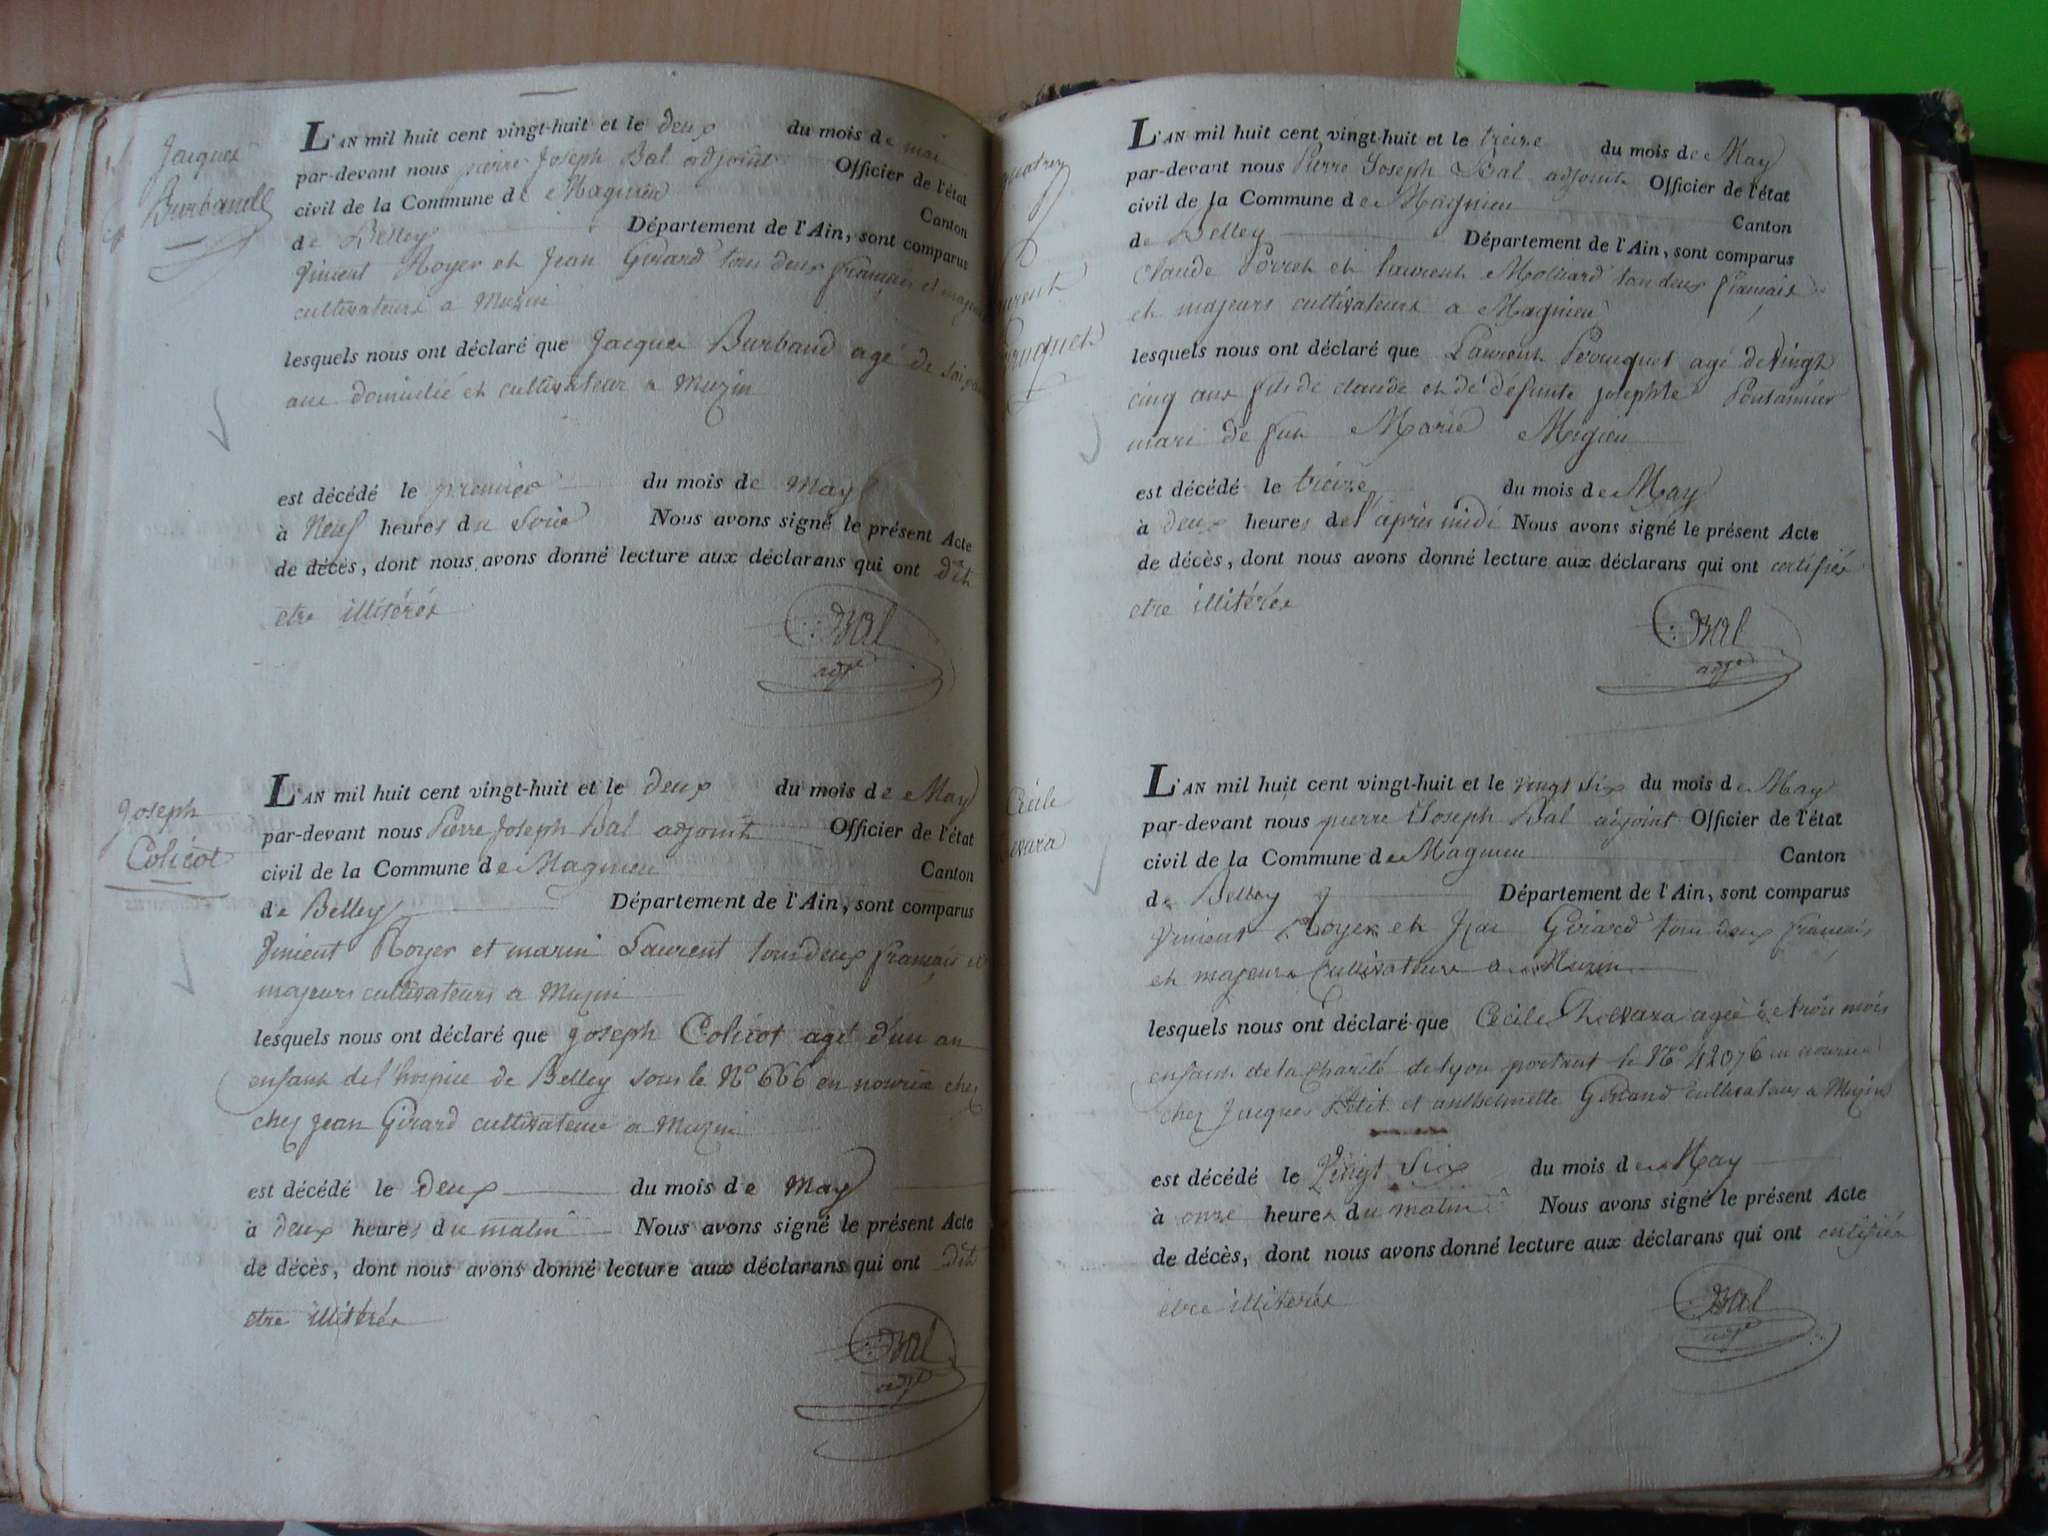 Jacques
Burband
L'AN mil huit cent vingt-huit et le deux du mois de mai
par-devant nous pierre Joseph Bal adjoint Officier de l'état
civil de la Commune de Magnieu Canton
de Belley Département de l'Ain, sont comparus
Vincent Royer et Jean Girard tous deux français et
cultivateurs a Muzin
lesquels nous ont déclaré que Jacques Burband agé de
ans domicilié et cultivateur a Muzin
est décédé le premier du mois de May
à Neuf heures du Soir Nous avons signé le présent Acte
de décès, dont nous avons donné lecture aux déclarans qui ont dit
etre illitérés
Bal
adjt
Joseph
Colicot
L'AN mil huit cent vingt-huit et le deux du mois de May
par-devant nous Pierre Joseph Bal adjoint Officier de l'état
civil de la Commune de Magnieu Canton
de Belley Département de l'Ain, sont comparus
Vincent Royer et marin Laurent tous deux français et
majeurs cultivateurs a Muzin
lesquels nous ont déclaré que joseph Colicot agé d'un an
enfant de l'hospice de Belley sous le N° 666 en nourice chez
chez Jean Girard cultivateur a Muzin
est décédé le deux du mois de May
à deux heures du matin Nous avons signé le présent Acte
de décès, dont nous avons donné lecture aux déclarans qui ont dit
etre illitérés
Bal
adjt
L'AN mil huit cent vingt-huit et le treize du mois de May
par-devant nous Pierre Joseph Bal adjoint Officier de l'état
civil de la Commune de Magnieu Canton
de Belley Département de l'Ain, sont comparus
Claude Perret et laurent Molliard tous deux français
et majeurs cultivateurs a Magnieu
lesquels nous ont déclaré que Laurent Perruquet agé de Vingt
cinq ans fils de claude et de défunte josephte
mari de Marie
est décédé le treize du mois de May
à deux heures de l'après midi Nous avons signé le présent Acte
de décès, dont nous avons donné lecture aux déclarans qui ont certifiés
etre illitérés
Bal
adjt
Cécile
L'AN mil huit cent vingt-huit et le vingt six du mois de May
par-devant nous pierre Joseph Bal adjoint Officier de l'état
civil de la Commune de Magnieu Canton
de Belley Département de l'Ain, sont comparus
Vincent Royer et Jean Girard tous deux français
et majeurs Cultivateurs a Muzin
lesquels nous ont déclaré que Cécile agée de trois mois
enfant de la charité de lyon portant le N° 42076 en nourice
chez Jacques Petit et anthelmette Girard cultivateurs a Muzin
est décédé le Vingt Six du mois de May
à onze heures du matin Nous avons signé le présent Acte
de décès, dont nous avons donné lecture aux déclarans qui ont certifiés
etre illiterés
Bal
adjt